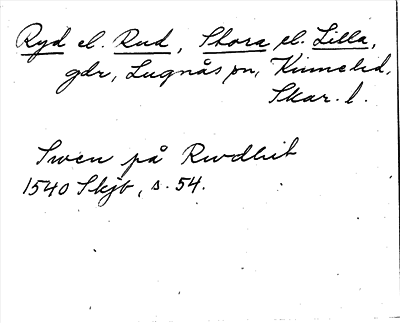 Ryd el. Rud, Stora el. Lilla,
gdr, Lugnås sn, Kinne hd,
Skar. l.
Swen på Rwdhit
1540 Skjb, s. 54.